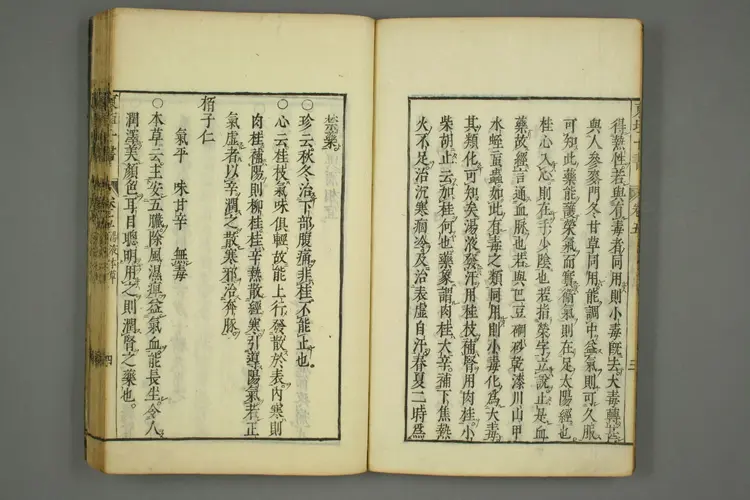 得熱性若與有毒者同用則小毒旣去大毒轉化
與人參麥門冬甘草同用能調中益氣則可久服
可知此藥能護榮氣而實衞氣則在足太陽經也
桂心入心則在手少陰也若指榮字立說止是血
藥故經言通血脈也若與巴豆硇砂乾漆川山甲
水蛭䖟蟲如此有毒之類同用則小毒化爲大毒
其類化可知矣湯液發汗用桂枝補腎用肉桂小
柴胡止云加桂何也藥象謂肉桂大辛補下焦熱
火不足治沉寒痼冷及治表虛自汗春夏二時爲
禁藥
○珍云秋冬治下部腹痛非桂不能止也
○心云桂枝氣味俱輕故能上行發散於表內寒則
肉桂補陽則柳桂桂辛熱散經寒引導陽氣若正
氣虛者以辛潤之散寒邪治奔豚
栢子仁
氣平 味甘辛 無毒
○本草云主安五臟除風濕痺益氣血能長生令人
潤澤美顏色耳目聰明用之則潤腎之藥也
卷五
三
四